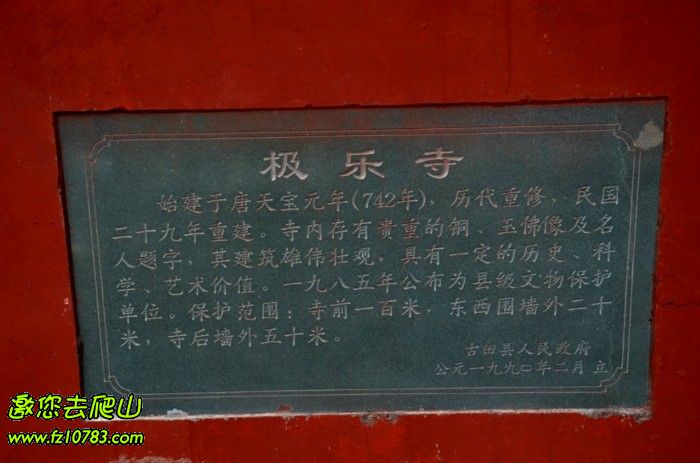 极乐寺
始建于唐天宝元年(742年)，历代重修，民国
二十九年重建。寺内存有贵重的铜、玉佛像及名
人题字，其建筑雄伟壮观，具有一定的历史、科
学、艺术价值。一九八五年公布为县级文物保护
单位。保护范围：寺前一百米，东西围墙外二十
米，寺后墙外五十米。
古田县人民政府
公元一九九〇年二月 立
邀您去爬山
www.fz10783.com